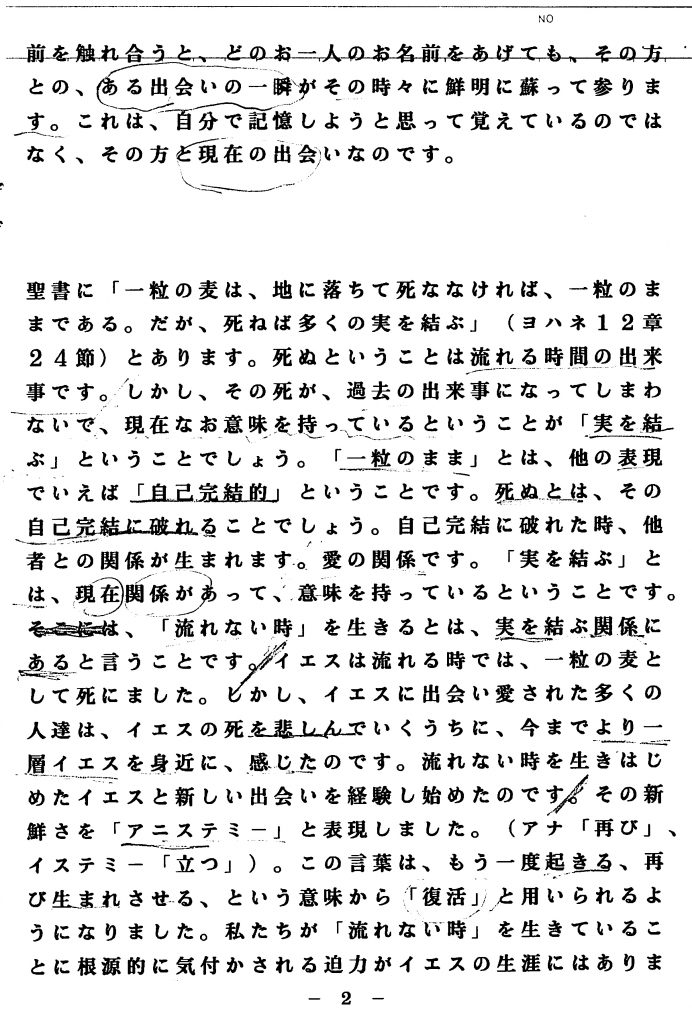 NO
前を触れ合うと、どのお一人のお名前をあげても、その方
との、ある出会いの一瞬がその時々に鮮明に蘇って参りま
す。これは、自分で記憶しようと思って覚えているのでは
なく、その方と現在の出会いなのです。
聖書に「一粒の麦は、地に落ちて死ななければ、一粒のま
まである。だが、死ねば多くの実を結ぶ」（ヨハネ１２章
２４節）とあります。死ぬということは流れる時間の出来
事です。しかし、その死が、過去の出来事になってしまわ
ないで、現在なお意味を持っているということが「実を結
ぶ」ということでしょう。「一粒のまま」とは、他の表現
でいえば「自己完結的」ということです。死ぬとは、その
自己完結に破れることでしょう。自己完結に破れた時、他
者との関係が生まれます。愛の関係です。「実を結ぶ」と
は、現在関係があって、意味を持っているということです。
そこには、「流れない時」を生きるとは、実を結ぶ関係に
あると言うことです。イエスは流れる時では、一粒の麦と
して死にました。しかし、イエスに出会い愛された多くの
人達は、イエスの死を悲しんでいくうちに、今までより一
層イエスを身近に、感じたのです。流れない時を生きはじ
めたイエスと新しい出会いを経験し始めたのです。その新
鮮さを「アニステミー」と表現しました。（アナ「再び」、
イステミー「立つ」）。この言葉は、もう一度起きる、再
び生まれさせる、という意味から「復活」と用いられるよ
うになりました。私たちが「流れない時」を生きているこ
とに根源的に気付かされる迫力がイエスの生涯にはありま
－ 2 －